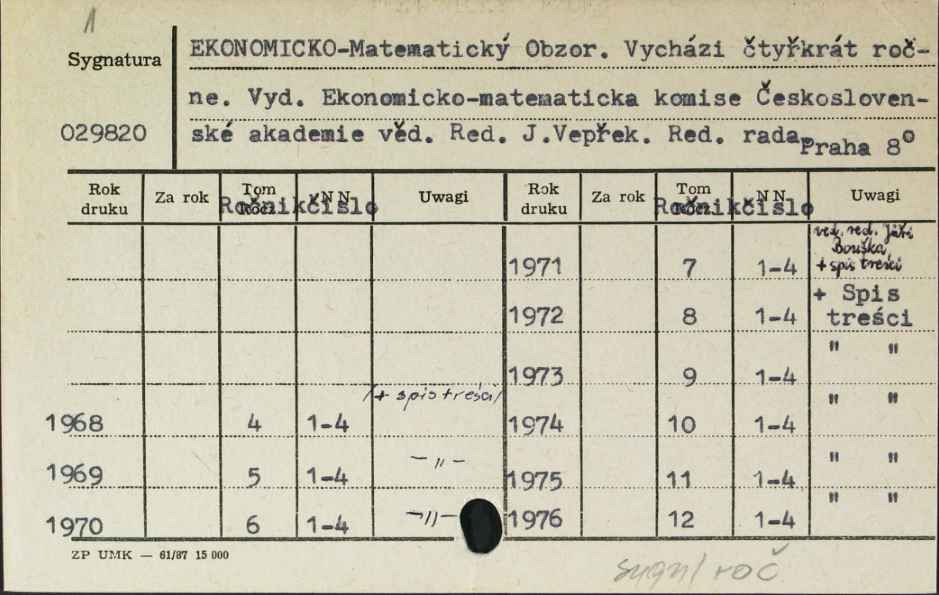 1
Sygnatura
029820
EKONOMICKO-Matematický Obzor. Vychází čtyřkrát roč-
ne. Vyd. Ekonomicko-matematicka komise Českosloven-
ské akademie věd. Red. J.Vepřek. Red. rada.
Praha 8°
Rok druku Za rok Tom Roczn. NN Uwagi Rok druku Za rok Tom Roczn. NN Uwagi
Ročnik číslo Ročnik číslo
ved. red. Jiří
Bouška
1971 7 1-4 + spis treści
+ Spis
1972 8 1-4 treści
" "
1973 9 1-4
/+ spis treści/ " "
1968 4 1-4 1974 10 1-4
1969 5 1-4 -"- 1975 11 1-4 " "
1970 6 1-4 -"- 1976 12 1-4 " "
ZP UMK — 61/87 15 000
sygn/ roč